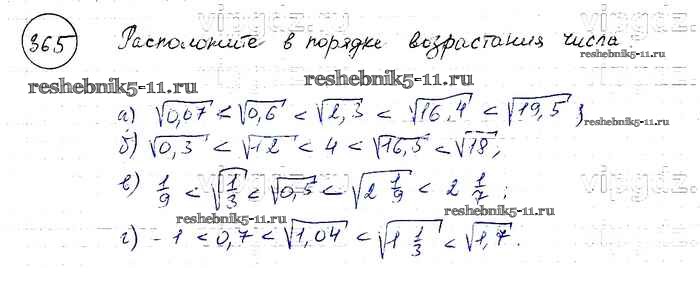 365 Расположите в порядке возрастания числа
reshebnik5-11.ru reshebnik5-11.ru
а) √0,07 < √0,6 < √2,3 < √16,4 < √19,5;
reshebnik5-11.ru
б) √0,3 < √12 < 4 < √16,5 < √18;
в) 1/9 < √1/3 < √0,5 < √2 1/9 < 2 1/7;
reshebnik5-11.ru reshebnik5-11.ru
г) -1 < 0,7 < √1,04 < √1 1/3 < √1,7.